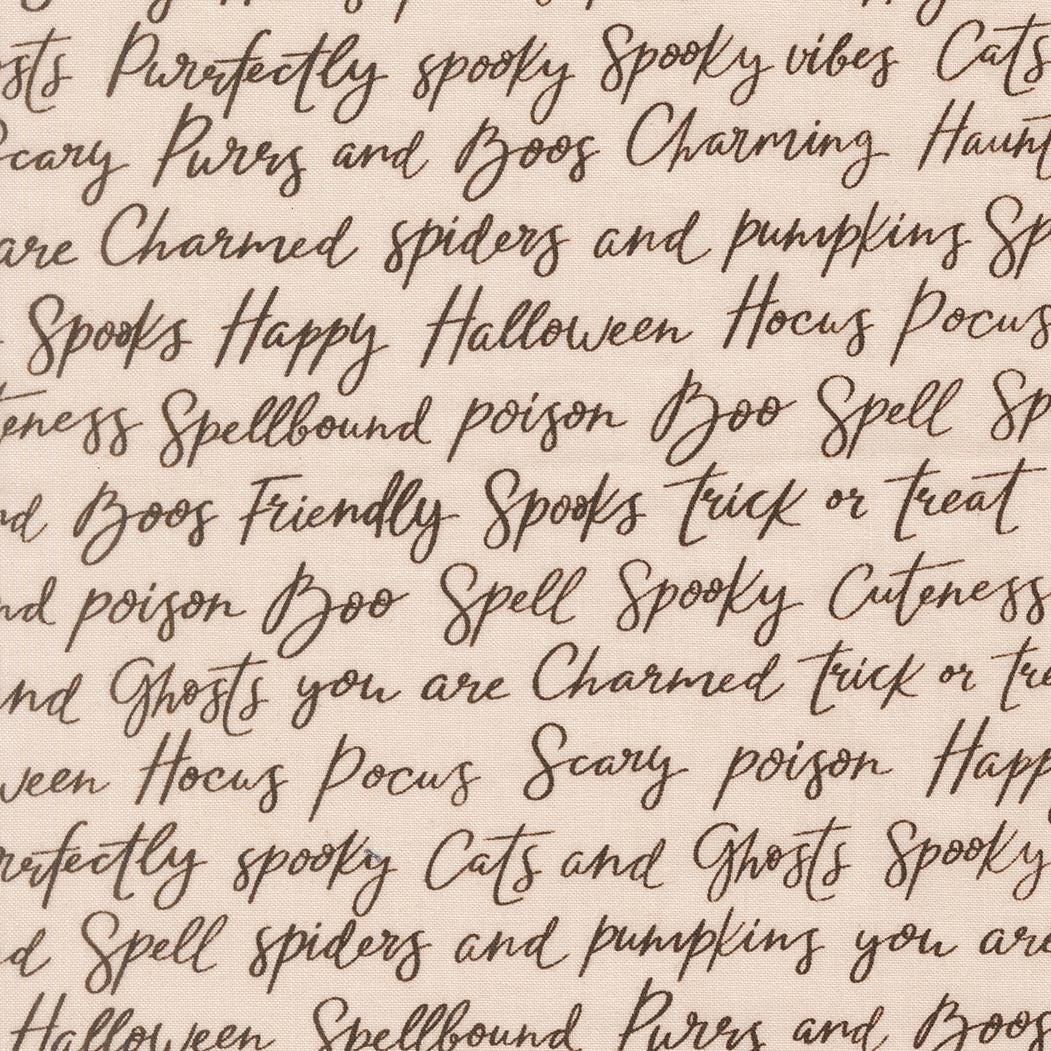 sts Purrfectly spooky Spooky vibes Cats
Scary Purrs and Boos Charming Haunt
are Charmed spiders and pumpkins Sp
Spooks Happy Halloween Hocus Pocus
teness Spellbound poison Boo Spell Sp
nd Boos Friendly Spooks trick or treat
nd poison Boo Spell Spooky Cuteness
and Ghosts you are Charmed trick or tre
ween Hocus Pocus Scary poison Happy
rrfectly spooky Cats and Ghosts Spooky
d Spell spiders and pumpkins you are
Halloween Spellbound Purrs and Boos